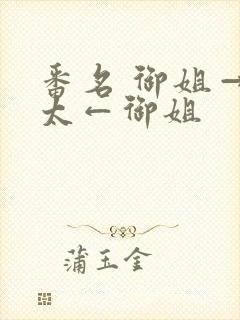 番名 御姐→
太←御姐
蒲玉金